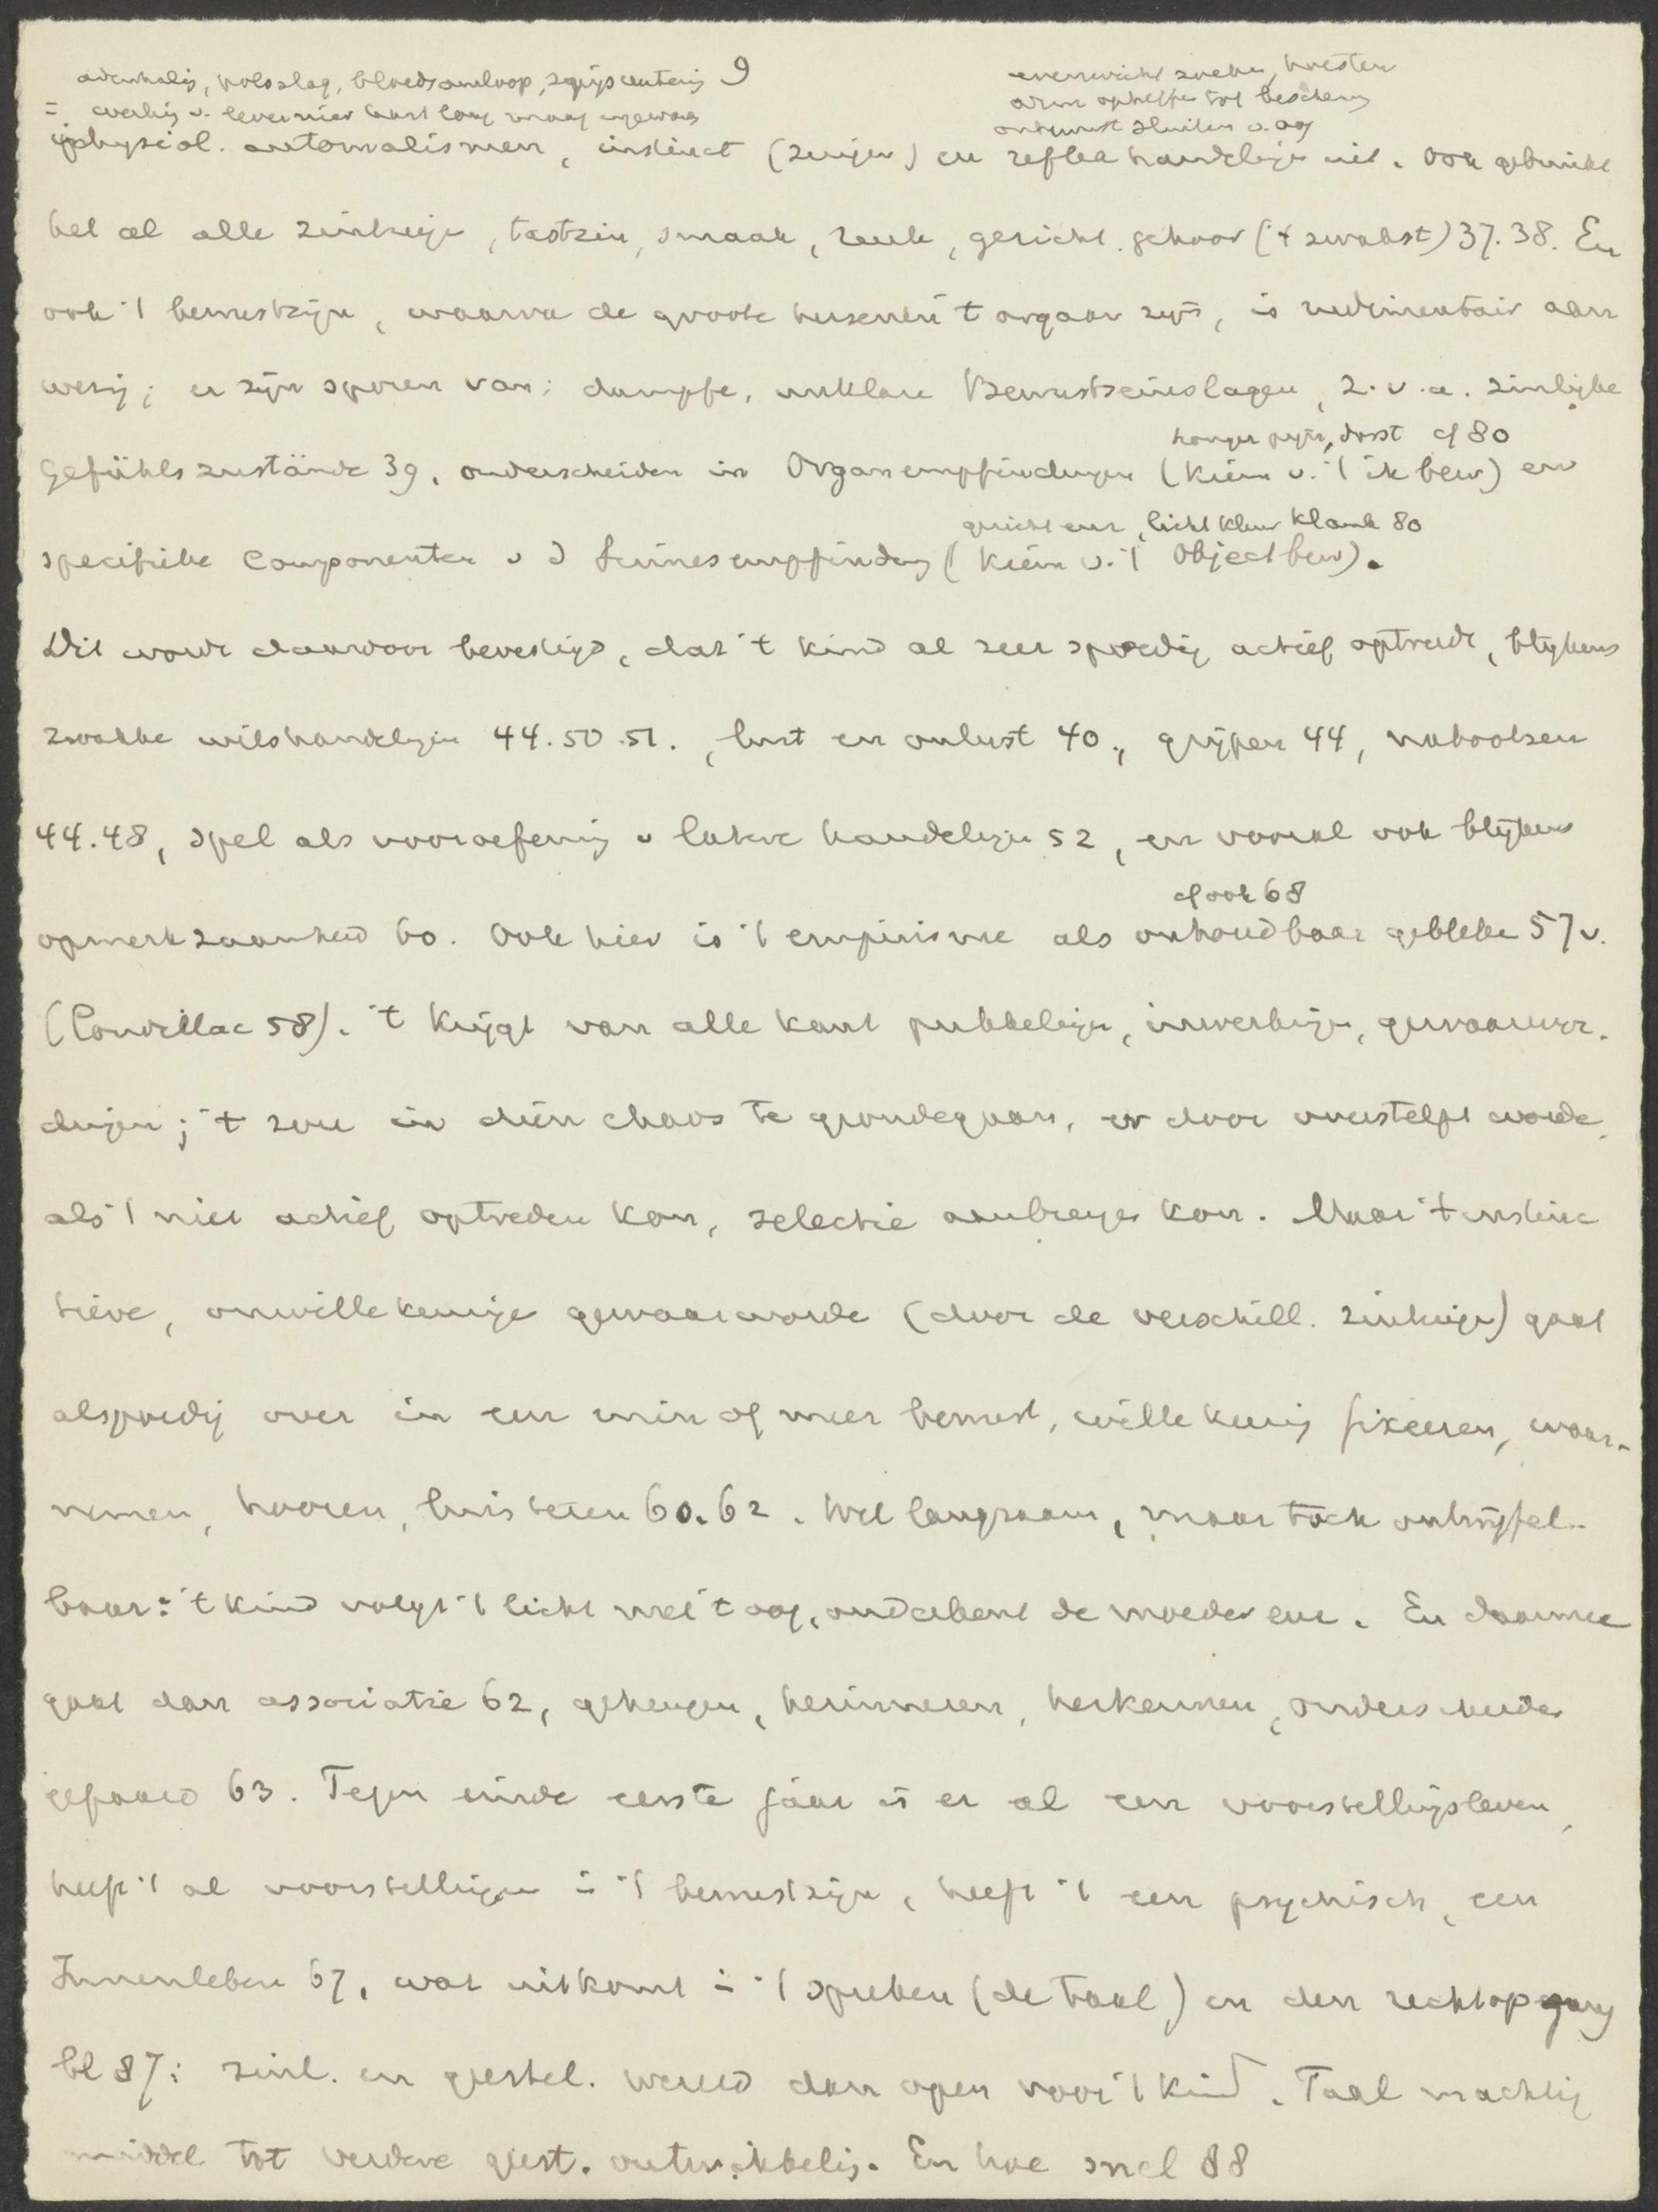 9
ademhalig, polsslag, bloedsomloop, spijsverterig
evenwicht zoeken, hoesten
= werkig v. lever nier hart long maag ingewan
arm opheffen tot bescherm
onbewust sluiten v. oog
physiol. automatismen, instinct (zuigen) en reflex handelige uit. Ook gebruikt
het al alle zintuige, tastzin, smaak, reuk, gezicht, gehoor ('t zwakst) 37.38. En
ook 't bewustzijn, waarva de groote hersenen 't orgaan zijn, is rudimentair aan
wezig; er zijn sporen van: dumpfe, unklare Bewustseinslagen, z.v.a. zinlijke
honger pijn, dorst cf 80
Gefühlszustände 39, onderscheiden in Organempfindungen (kiem v. 't ik bew) en
gezicht, licht kleur klank 80
specifieke Componenten v d Sinnesempfindung (kiem v. 't Objectbew).
Dit wordt daardoor bevestigd, dat 't kind al zeer spoedig actief optreedt, blijkens
zwakke wilshandelige 44.50.51., lust en onlust 40, grijpen 44, nabootsen
44.48, spel als vooroefenig v latere handelige 52, en vooral ook blijkens
cf ook 68
opmerkzaamheid 60. Ook hier is 't empirisme als onhoudbaar gebleke 57v.
(Condillac 58). 't Krijgt van alle kant prikkelige, inwerkige, gewaarwor-
dingen; 't zou in dien chaos te grondegaan, er door overstelpt worde,
als 't niet actief optreden kon, selectie aanbrenge kon. Maar 't instinc
tieve, onwillekeurige gewaarworde (door de verschill. zintuige) gaat
alspoedig over in een min of meer bewust, willekeurig fixeeren, waar-
nemen, hooren, luisteren 60.62. Wel langzaam, maar toch ontwijfel-
baar: 't kind volgt 't licht met 't oog, onderkent de moeder enz. En daarmee
gaat dan associatie 62, geheugen, herinneren, herkennen, onderscheide
gepaard 63. Tegen einde eerste jaar is er al een voorstelligsleven,
heeft 't al voorstellige in 't bewustzijn, heeft 't een psychisch, een
Innenleben 67, wat uitkomt in 't spreken (de taal) en den rechtop gang
bl 87: zinl. en geestel. wereld dan open voor 't kind. Taal machtig
middel tot verdere geest. ontwikkelig. En hoe snel 88